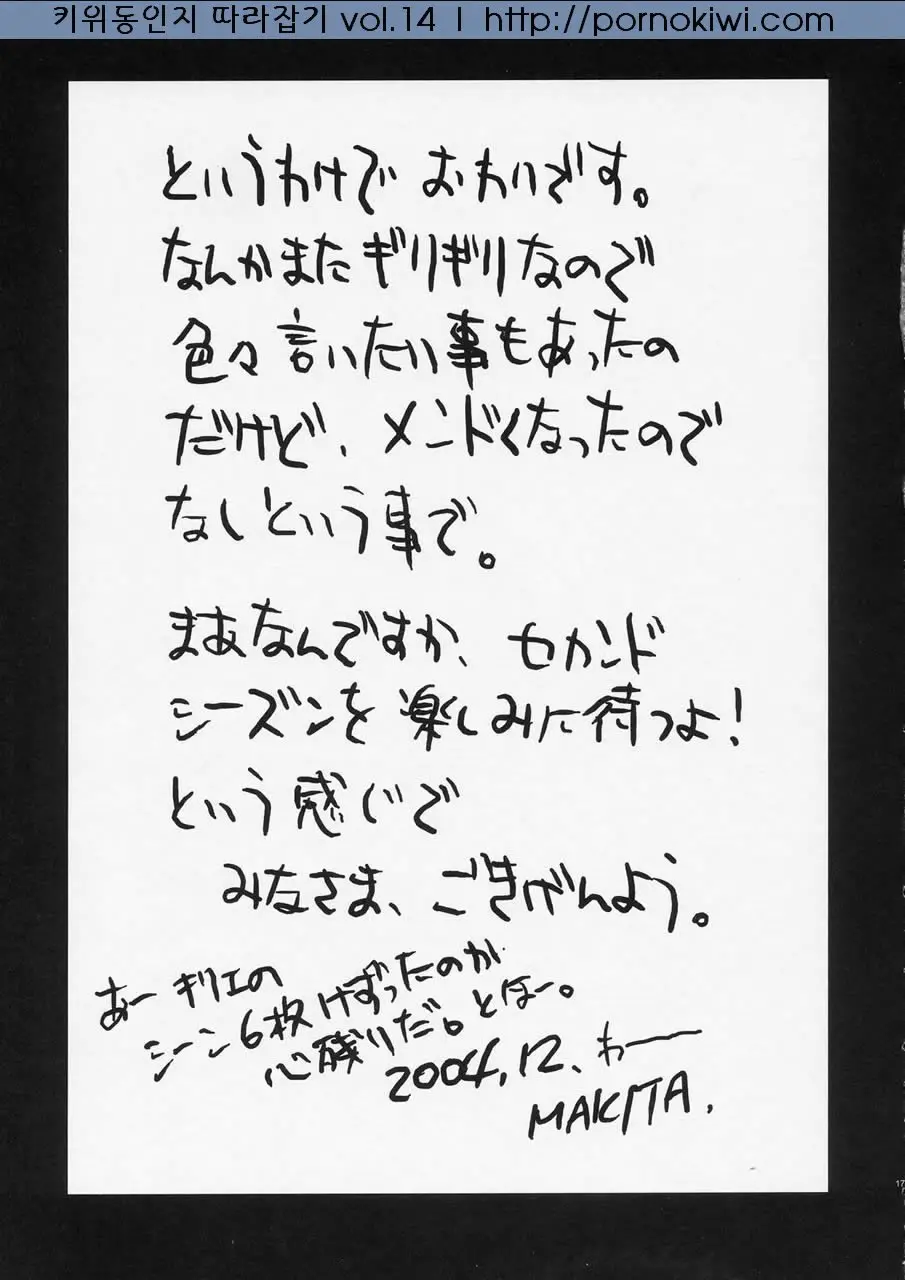 키위동인지 따라잡기 vol.14 | http://pornokiwi.com
というわけで おわりです。
なんかまたギリギリなので
色々言いたい事もあったの
だけど、メンドくなったので
ないという事で。
まあなんですか、セカンド
シーズンを楽しみに待つよ！
という感じで
みなさま、ごきげんよう。
あー キリエの
シーン6枚けずったのが
心残りだ。とほー。
2004.12. わー
MAKITA.
17